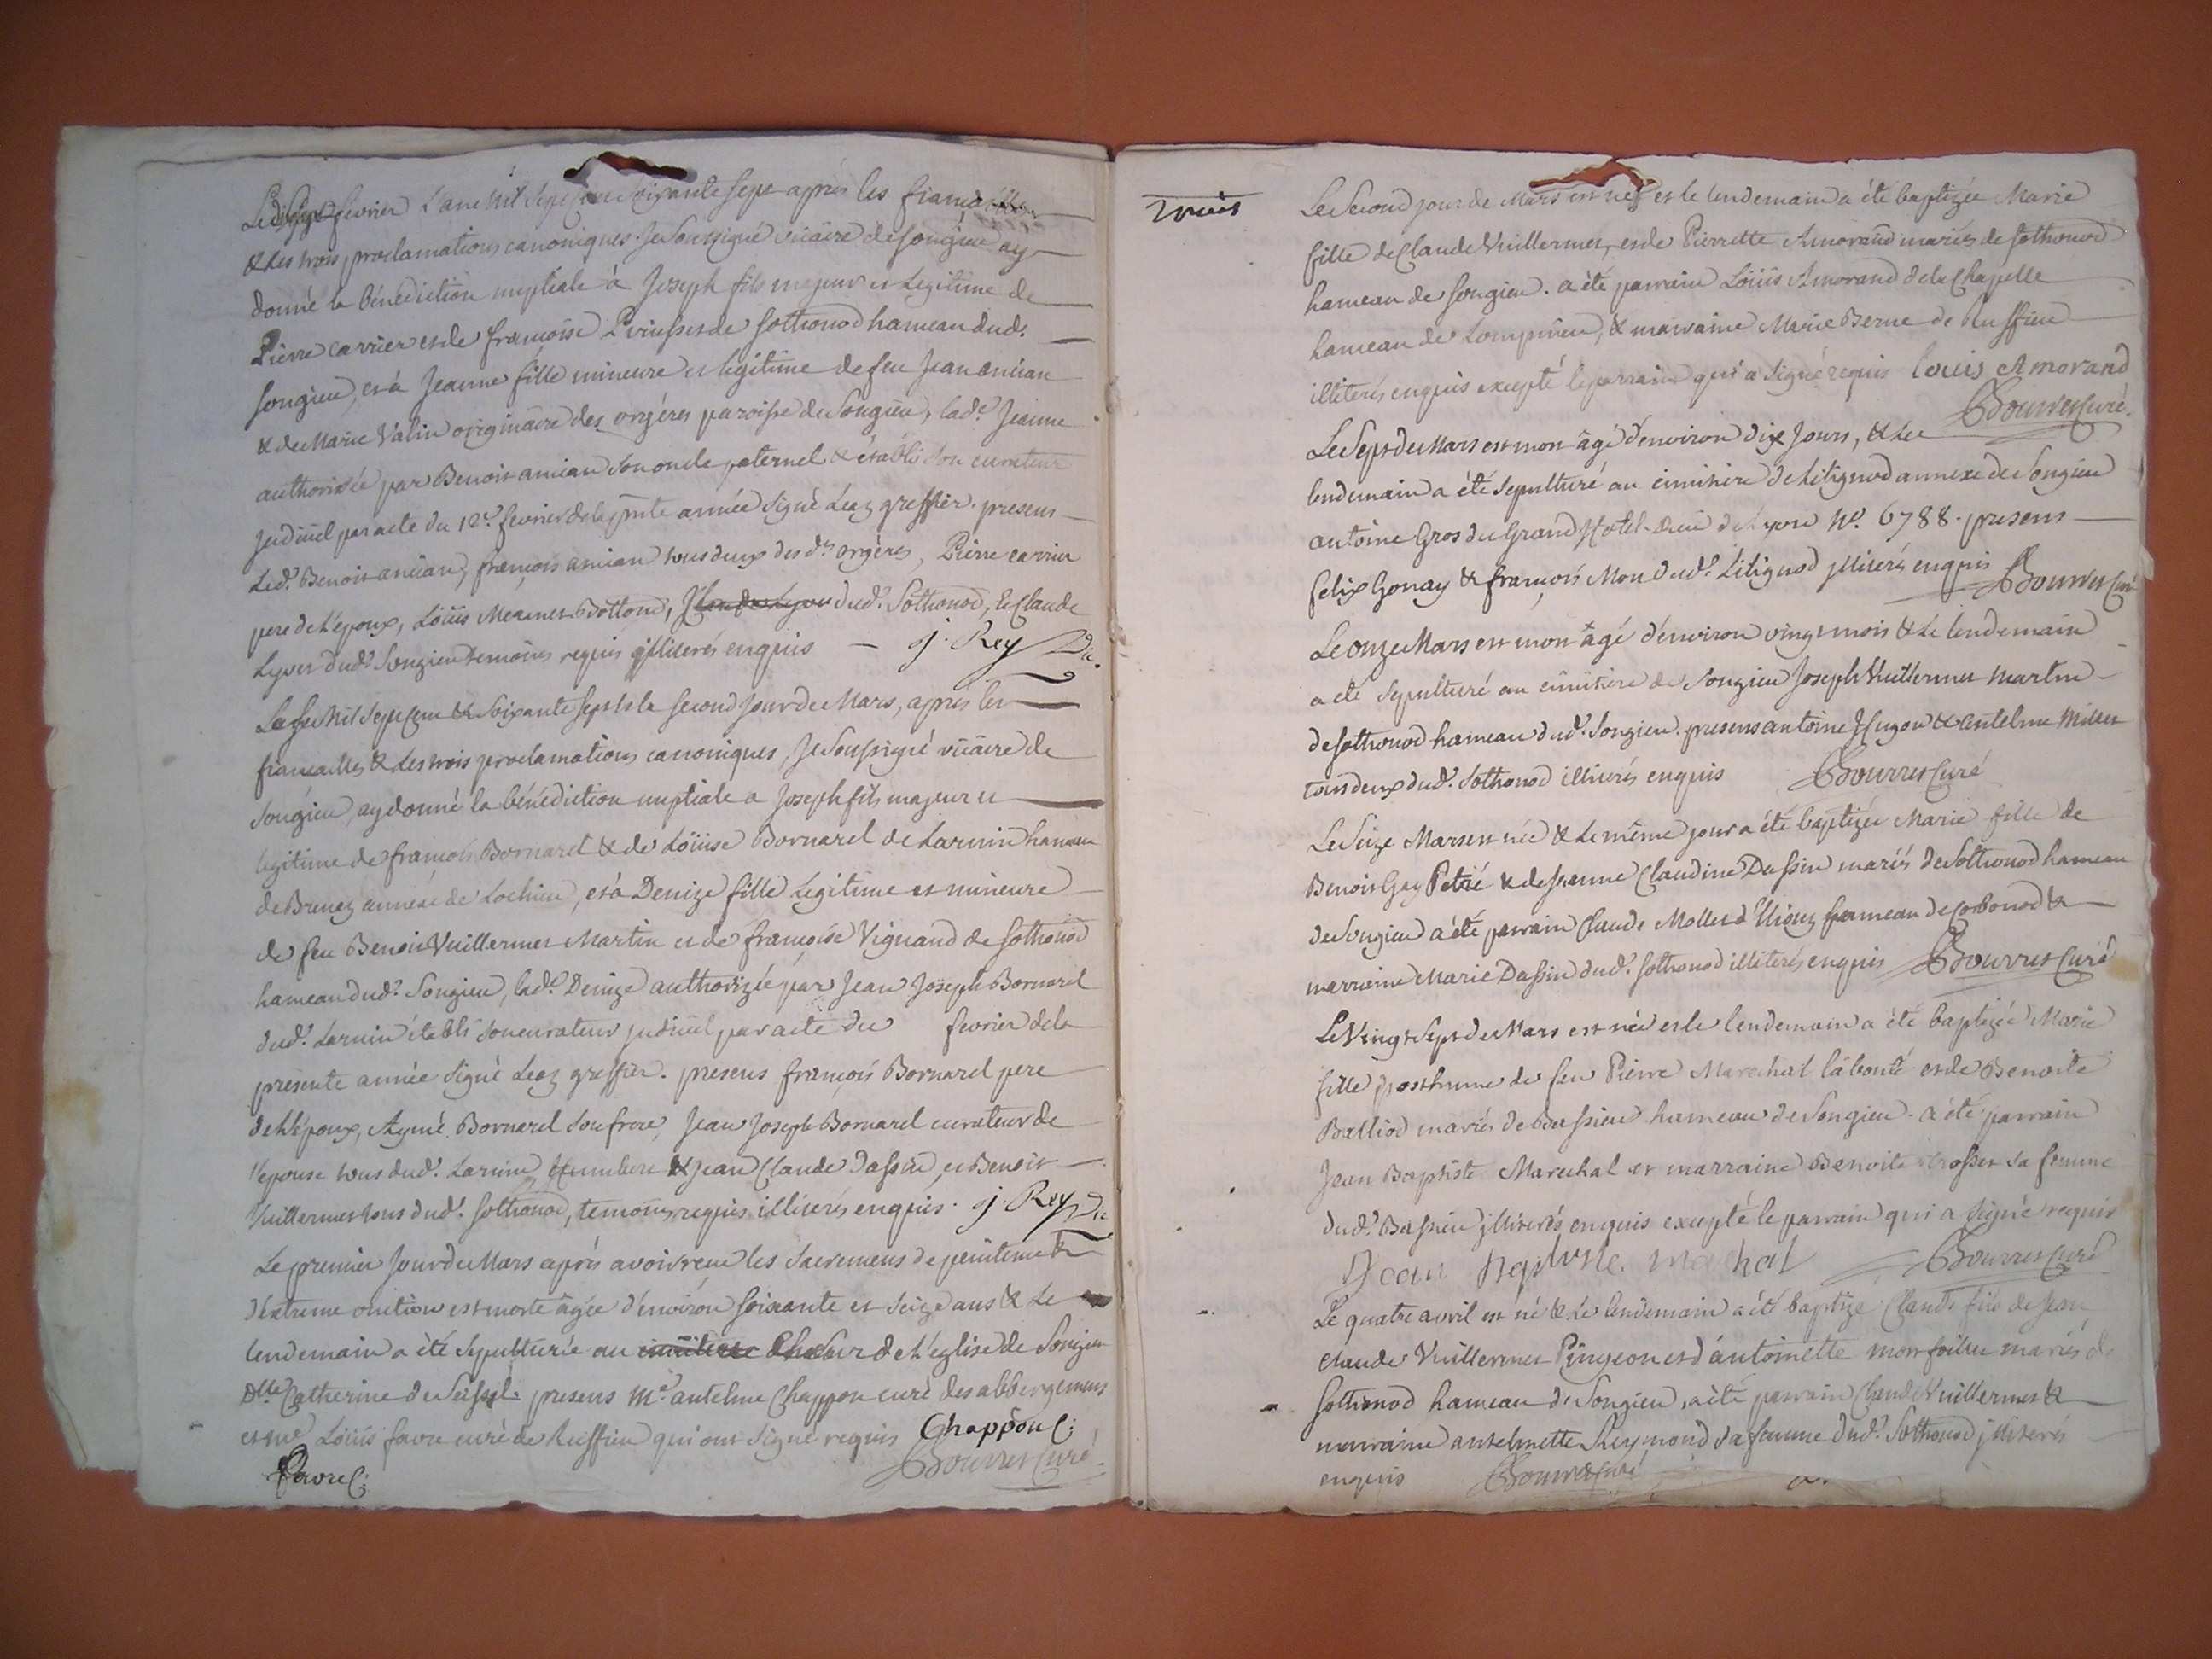 Le dixsept fevrier L'an Mil Sept Cent soixante sept après les fiançailles
& les trois proclamations canoniques. Je Soussigné vicaire de songieu ay
donné la bénédiction nuptiale à Joseph fils majeur et Legitime de
Pierre carrier et de françoise de sothonod hameau dud.
songieu, et à Jeanne fille mineure et légitime de feu Jean anician
& de Marie Valin originaire des orgères paroisse de Songieu, lad.e Jeanne
authorisée par Benoit anician son oncle paternel & établi son curateur
judiciel par acte du 12.e fevrier de la pnte année signé Leaz greffier. presens
Led. Benoit anician, françois anician tous deux des d.ts orgères, Pierre carrier
pere de l'époux, Loüis Mermet Bottond, dud. Sothonod, & Claude
Lyvet dud. Songieu temoins requis illiterés enquis — j. Rey Vic.
La fu Mil Sept Cent & Soixante Sept & le second jour de Mars, après les
fiancailles & les trois proclamations canoniques, Je Soussigné vicaire de
Songieu, ay donné la bénédiction nuptiale a Joseph fils majeur et
legitime de françois Bornarel & de Loüise Bornarel de Larnin hameau
de Brenaz annéxe de Lochieu, et à Denize fille Legitime et mineure
de feu Benoit Vuillermet Martin et de françoise Vignand de sothonod
hameau dud. Songieu, lad.e Denize authorizée par Jean Joseph Bornarel
dud. Larnin établi son curateur judiciel par acte du fevrier de la
présente année signé Leaz greffier. presens françois Bornarel pere
de l'époux, Aymé Bornarel son frere, Jean Joseph Bornarel curateur de
l'epouse tous dud. Larnin, Humbert & Jean Claude Dassin, et Benoit
Vuillermet tous dud. Sothonod, temoins requis illiterés enquis. j. Rey Vic
Le premier jour de Mars après avoir reçu les Sacremens de penitence &
d'extreme onction est morte âgée d'environ soixante et seize ans & le
lendemain a été sepulturée au chœur de l'église de Songieu
D.lle Catherine de Seissel. presens M.e antelme Chappon curé des abbergemens
et m.e Loüis favre curé de Ruffieu qui ont signé requis Chappon C:
favre C: Bourret Curé
Le Second jour de Mars est née et le lendemain a été baptizée Marie
fille de Claude Vuillermet, et de Pierrette Amorand mariés de sothonod
hameau de songieu. a été parrain Loüis Amorand de la Chapelle
hameau de Lompnieu, & marraine Marie Berne de Ruffieu
illiterés enquis excepté le parrain qui a signé requis louis Amorand
Bourret Curé.
Le Sept de Mars est mort âgé d'environ dix jours, & le
lendemain a été sepulturé au cimitière de Litignod annexe de Songieu
antoine Gros du Grand Hotel-Dieu de Lyon N.o 6788. presens
felix Gonay & françois Mon dud. Litignod illiterés enquis Bourret Curé
Le onze Mars est mort âgé d'environ vingt mois & le lendemain
a eté sepulturé au cimitière de Songieu Joseph Vuillermet Martin
de sothonod hameau dud. Songieu. presens antoine Hugon & antelme Millet
tous deux dud. Sothonod illiterés enquis Bourret Curé
Le Seize Mars est née & le même jour a été baptizée Marie fille de
Benoit Gay Petré & de Jeanne Claudine Dassin mariés de Sothonod hameau
de Songieu a été parrain Claude Mollet d'Uliouz hameau de corbonod &
marraine Marie Dassin dud. sothonod illiterés enquis Bourret Curé
Le Vingt Sept de Mars est née et le lendemain a été baptizée Marie
fille posthume de feu Pierre Marechal labonté et de Benoite
Balliod mariés de Bassieu hameau de Songieu. a été parrain
Jean Baptiste Marechal et marraine Benoite sa femme
dud. Bassieu illiterés enquis excepté le parrain qui a signé requis
Jean Baptiste machal Bourret Curé
Le quatre avril est né & le lendemain a été baptizé Claude fils de Jean
Claude Vuillermet Pingeon et d'antoinette monfoilier mariés de
Sothonod hameau de Songieu, a été parrain Claude Vuillermet &
marraine antelmette Reymond sa femme dud. Sothonod illiterés
enquis Bourret Curé